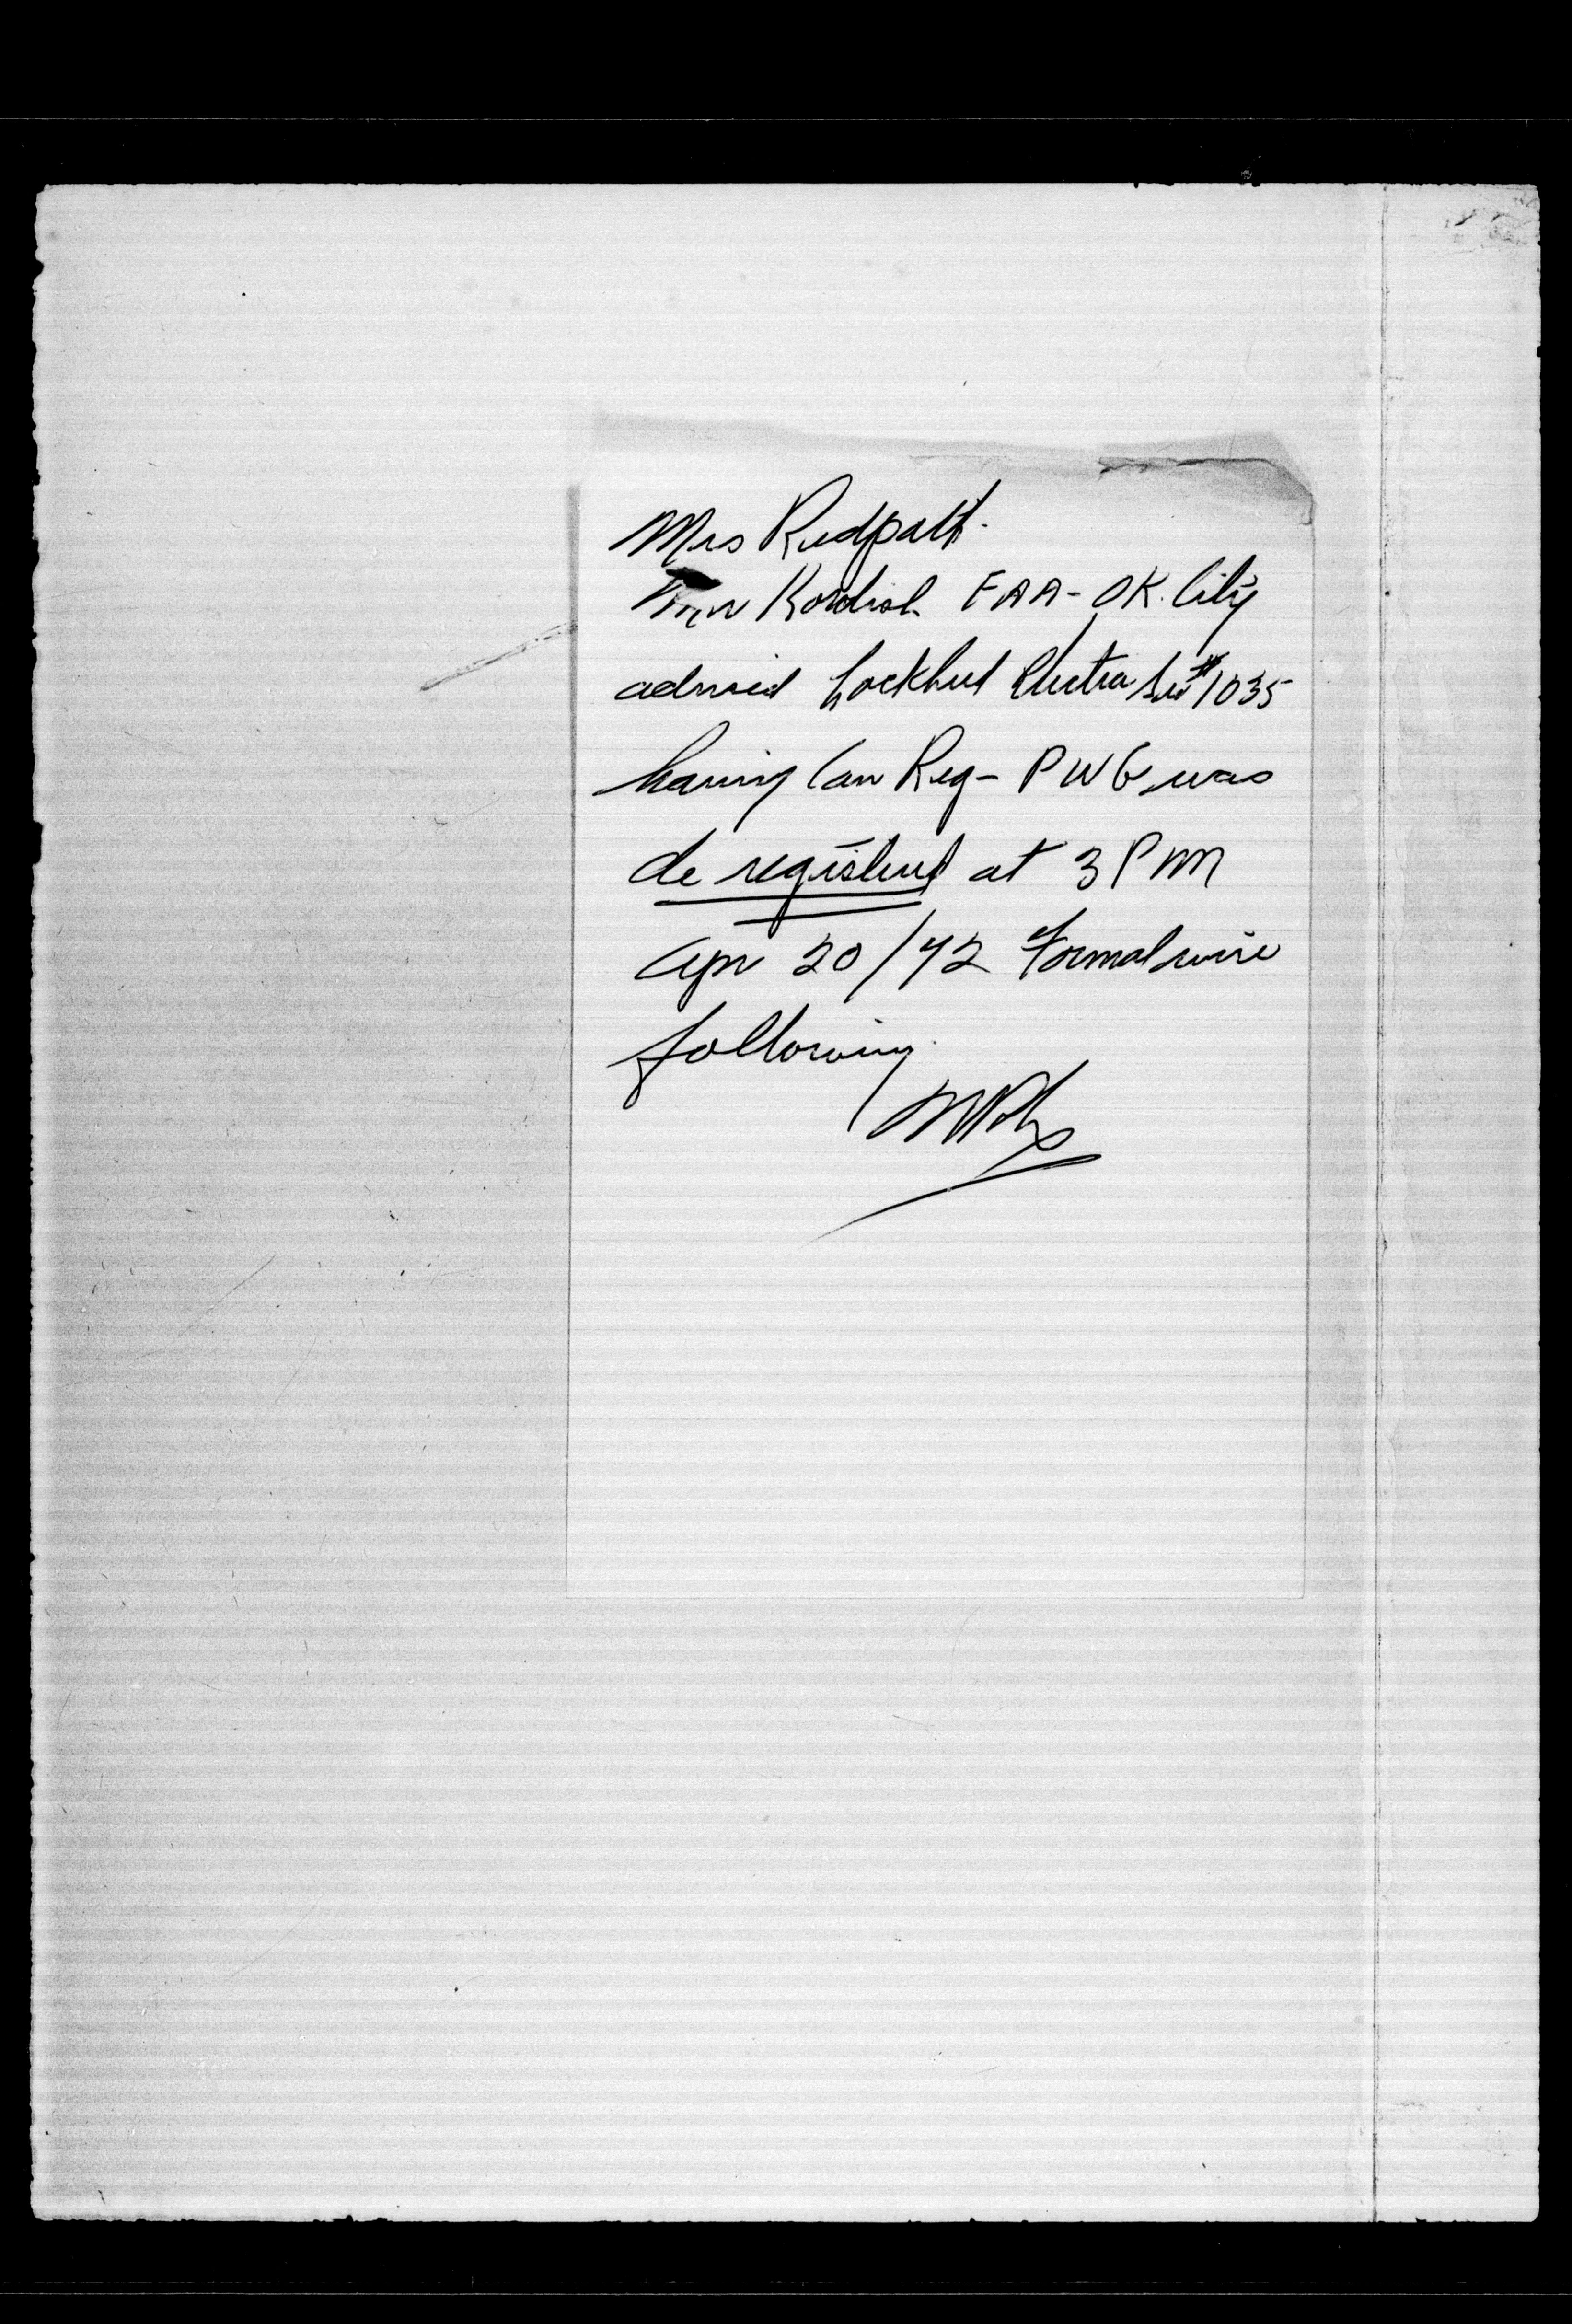 Mrs Redpath.
Kordish FAA - OK. City
advised Lockheed Electra Ser #1035
having Can Reg - PWG was
de registered at 3 PM
Apr 20/72 Formal wire
following.